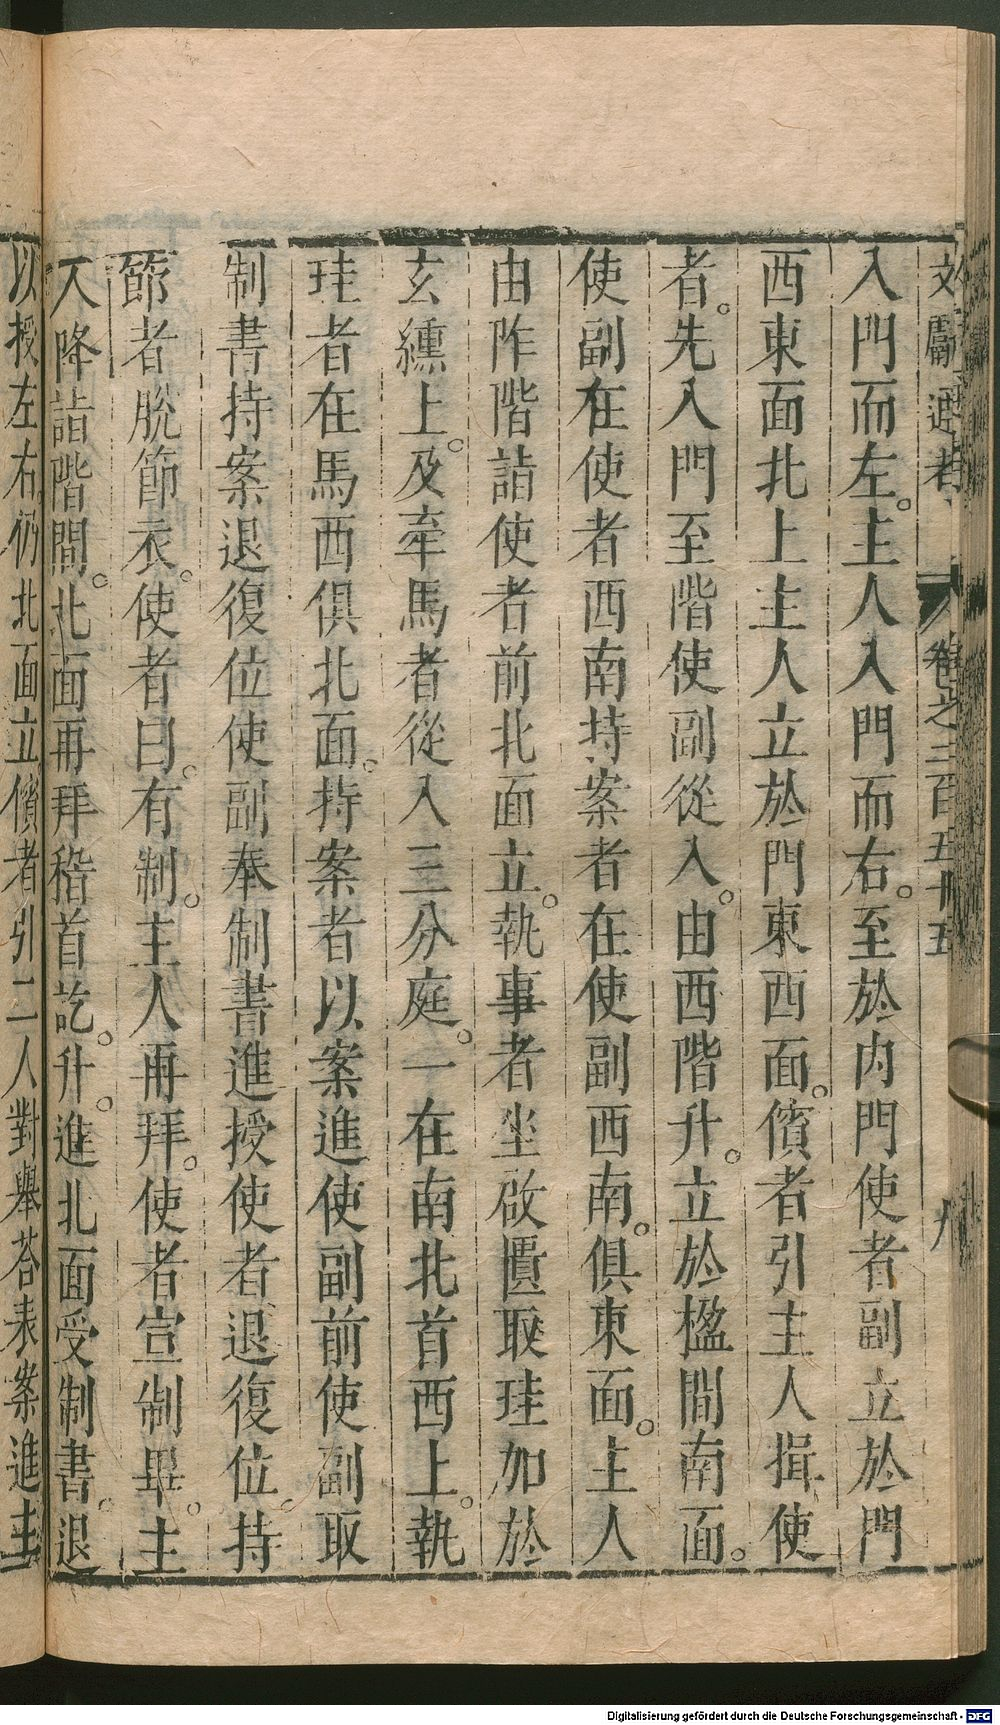 文獻通考 卷之二百五十五 九
入門而左。主人入門而右。至於内門使者副立於門
西東面北上主人立於門東西面。儐者引主人揖使
者。先入門至階使副從入。由西階升。立於楹間南面。
使副在使者西南持案者在使副西南。俱東面。主人
由阼階詣使者前北面立。執事者坐啟匵取珪加於
玄纁上。及牽馬者從入三分庭。一在南北首西上。執
珪者在馬西俱北面。持案者以案進使副前使副取
制書持案退復位使副奉制書進授使者退復位。持
節者脫節衣。使者曰。有制。主人再拜。使者宣制畢。主
人降詣階間。北面再拜稽首訖。升。進北面受制書。退
以授左右。仍北面立儐者引二人對舉荅表案進主
Digitalisierung gefördert durch die Deutsche Forschungsgemeinschaft - DFG